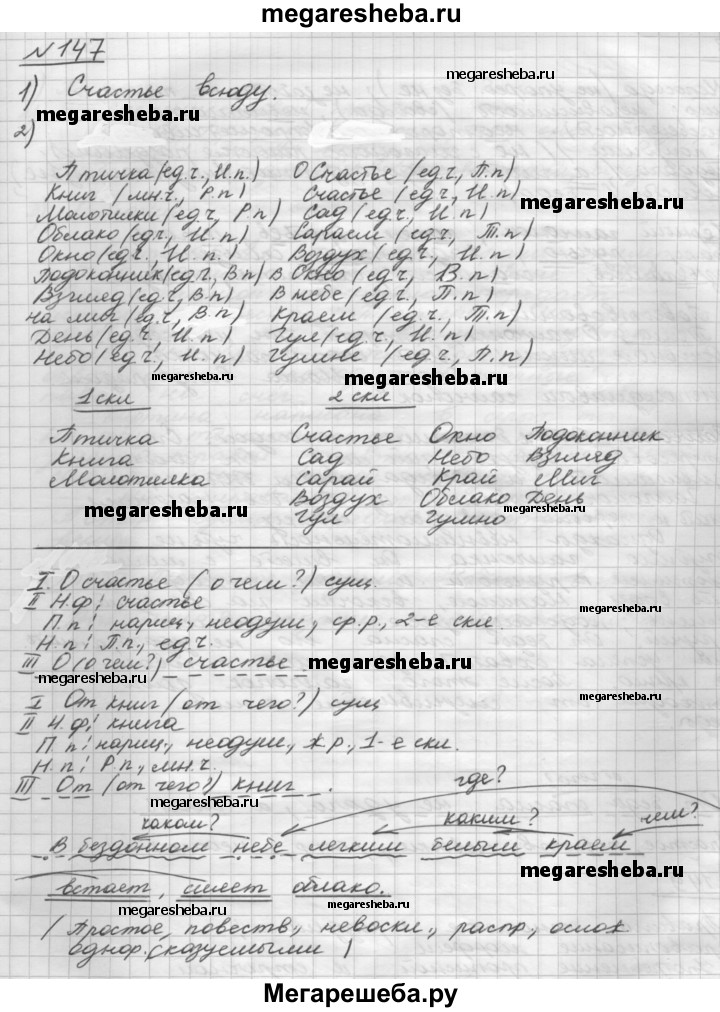 megaresheba.ru
№147
1) Счастье всюду.
megaresheba.ru
megaresheba.ru
2)
Птичка (ед.ч., И.п.) О Счастье (ед.ч, П.п)
Книг (мн.ч., Р.п) Счастье (ед.ч, И.п)
megaresheba.ru
Молотилки (ед.ч, Р.п) Сад (ед.ч, И.п)
Облако (ед.ч, И.п) Сараем (ед.ч, Т.п)
Окно (ед.ч., И.п.) Воздух (ед.ч., И.п)
Подоконник (ед.ч, В.п) в Окно (ед.ч, В.п)
Взгляд (ед.ч, В.п) В небе (ед.ч., П.п)
на миг (ед.ч, В.п) Краем (ед.ч., Т.п)
День (ед.ч., И.п) Гул (ед.ч., И.п)
Небо (ед.ч, И.п) Гумне (ед.ч, П.п)
megaresheba.ru
megaresheba.ru
1 скл 2 скл
Птичка Счастье Окно Подоконник
Книга Сад Небо Взгляд
Молотилка Сарай Край Миг
Воздух Облако День
megaresheba.ru
megaresheba.ru
Гул Гумно
I. О счастье (о чем?) сущ.
II Н.ф: счастье
megaresheba.ru
П.п: нариц., неодуш., ср.р., 2-е скл.
Н.п: П.п., ед.ч.
III О (о чем?) счастье
megaresheba.ru
megaresheba.ru
I От книг (от чего?) сущ
megaresheba.ru
II Н.ф: книга
П.п: нариц., неодуш., ж.р., 1-е скл.
Н.п: Р.п., мн.ч.
III От (от чего?) книг.
где?
megaresheba.ru
каком? каким? чем?
В бездонном небе легким белым краем
megaresheba.ru
встает, сияет облако.
megaresheba.ru
megaresheba.ru
(Простое, повеств., невоскл., распр., ослож.
однор. сказуемыми)
Мегарешеба.ру